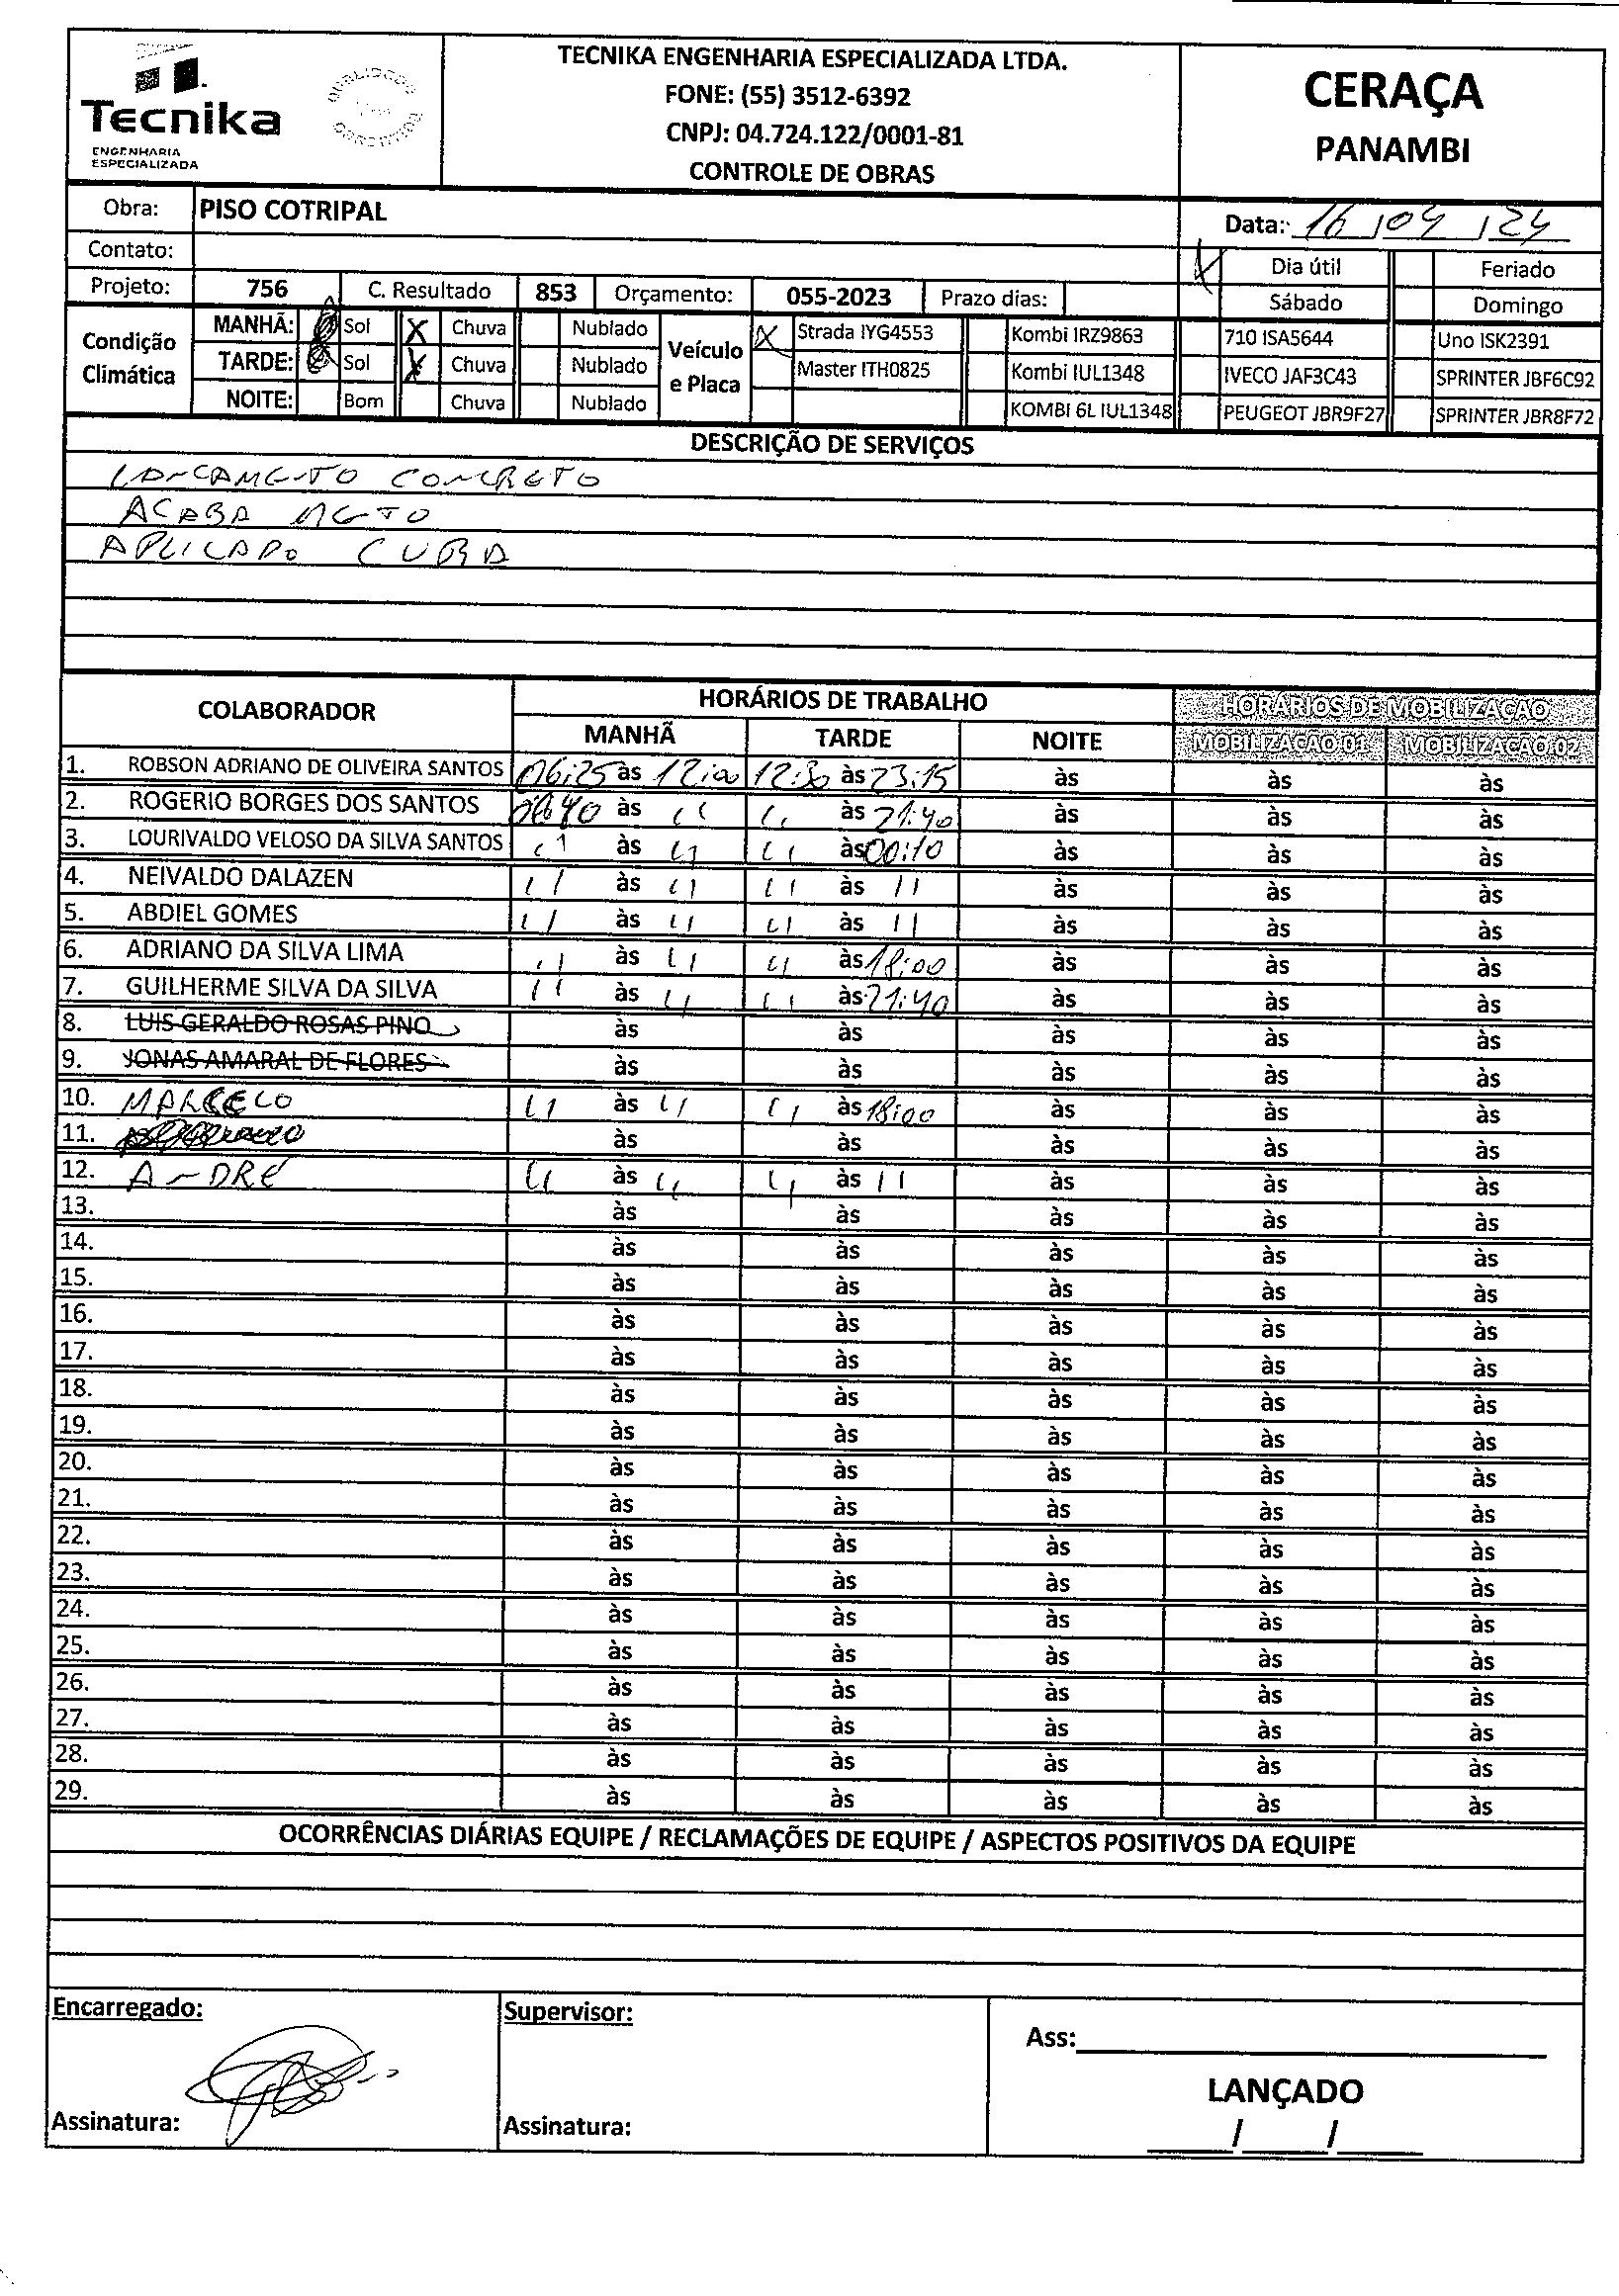 Tecnika
ENGENHARIA
ESPECIALIZADA
TECNIKA ENGENHARIA ESPECIALIZADA LTDA.
FONE: (55) 3512-6392
CNPJ: 04.724.122/0001-81
CONTROLE DE OBRAS
CERAÇA
PANAMBI
Obra: PISO COTRIPAL
Data: 16/04/24
Contato:
Dia útil Feriado
Projeto: 756 C. Resultado 853 Orçamento: 055-2023 Prazo dias:
Sábado Domingo
Condição Climática
MANHÃ: Sol X Chuva Nublado
TARDE: Sol X Chuva Nublado
NOITE: Bom Chuva Nublado
Veículo e Placa
X Strada IYG4553 Kombi IRZ9863 710 ISA5644 Uno ISK2391
Master ITH0825 Kombi IUL1348 IVECO JAF3C43 SPRINTER JBF6C92
KOMBI 6L IUL1348 PEUGEOT JBR9F27 SPRINTER JBR8F72
DESCRIÇÃO DE SERVIÇOS
LANCAMENTO CONCRETO
ACABAMETO
APLICADO CURA
COLABORADOR HORÁRIOS DE TRABALHO HORÁRIOS DE MOBILIZAÇÃO
MANHÃ TARDE NOITE MOBILIZACÃO 01 MOBILIZACÃO 02
1. ROBSON ADRIANO DE OLIVEIRA SANTOS 06:25 às 12:00 12:30 às 23:15 às às às
2. ROGERIO BORGES DOS SANTOS 06:40 às '' '' às 21:40 às às às
3. LOURIVALDO VELOSO DA SILVA SANTOS '' às '' '' às 00:10 às às às
4. NEIVALDO DALAZEN '' às '' '' às '' às às às
5. ABDIEL GOMES '' às '' '' às '' às às às
6. ADRIANO DA SILVA LIMA '' às '' '' às 18:00 às às às
7. GUILHERME SILVA DA SILVA '' às '' '' às 21:40 às às às
8. LUIS GERALDO ROSAS PINO às às às às às
9. JONAS AMARAL DE FLORES às às às às às
10. MARCELO '' às '' '' às 18:00 às às às
11. às às às às às
12. ANDRE '' às '' '' às '' às às às
13. às às às às às
14. às às às às às
15. às às às às às
16. às às às às às
17. às às às às às
18. às às às às às
19. às às às às às
20. às às às às às
21. às às às às às
22. às às às às às
23. às às às às às
24. às às às às às
25. às às às às às
26. às às às às às
27. às às às às às
28. às às às às às
29. às às às às às
OCORRÊNCIAS DIÁRIAS EQUIPE / RECLAMAÇÕES DE EQUIPE / ASPECTOS POSITIVOS DA EQUIPE
Encarregado: Supervisor:
Ass:
LANÇADO
Assinatura: Assinatura:
/ /